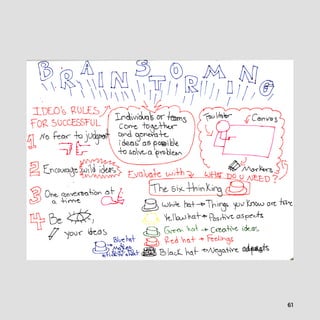 BRAINSTORMING
IDEO's RULES
FOR SUCCESSFUL
1 No fear to judgment
2 Encourage wild ideas
3 One conversation at
a time
4 Be
your ideas
Individuals or teams
come together
and generate
ideas as possible
to solve a problem
Facilitator
Canvas
Markers
WHAT DO U NEED?
Evaluate with
The six thinking
White hat → Things you know are true
Yellow hat → Positive aspects
Green hat → Creative ideas
Red hat → Feelings
Black hat → Negative aspects
Blue hat
61